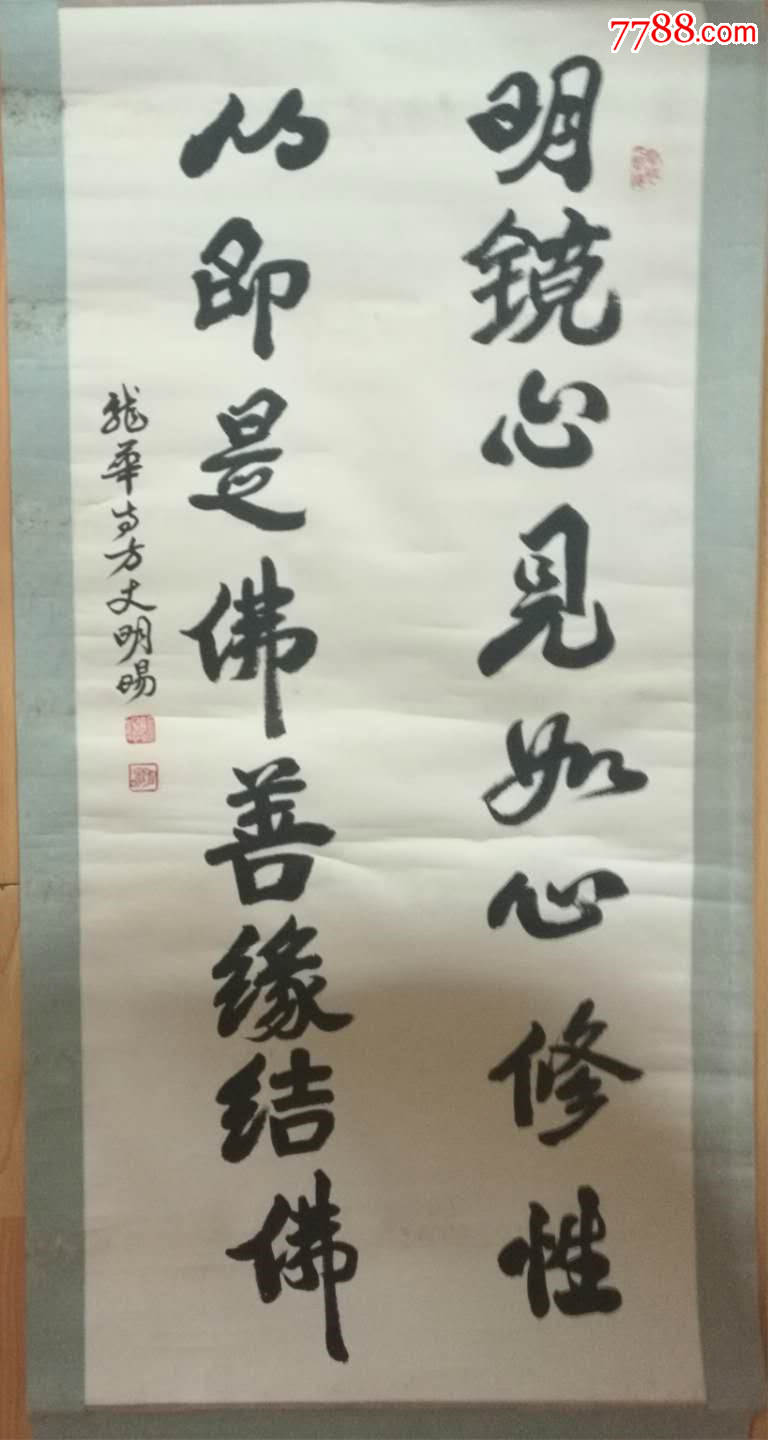 7788.com
明镜心見如心修性
心即是佛善缘结佛
龍華寺方丈明旸